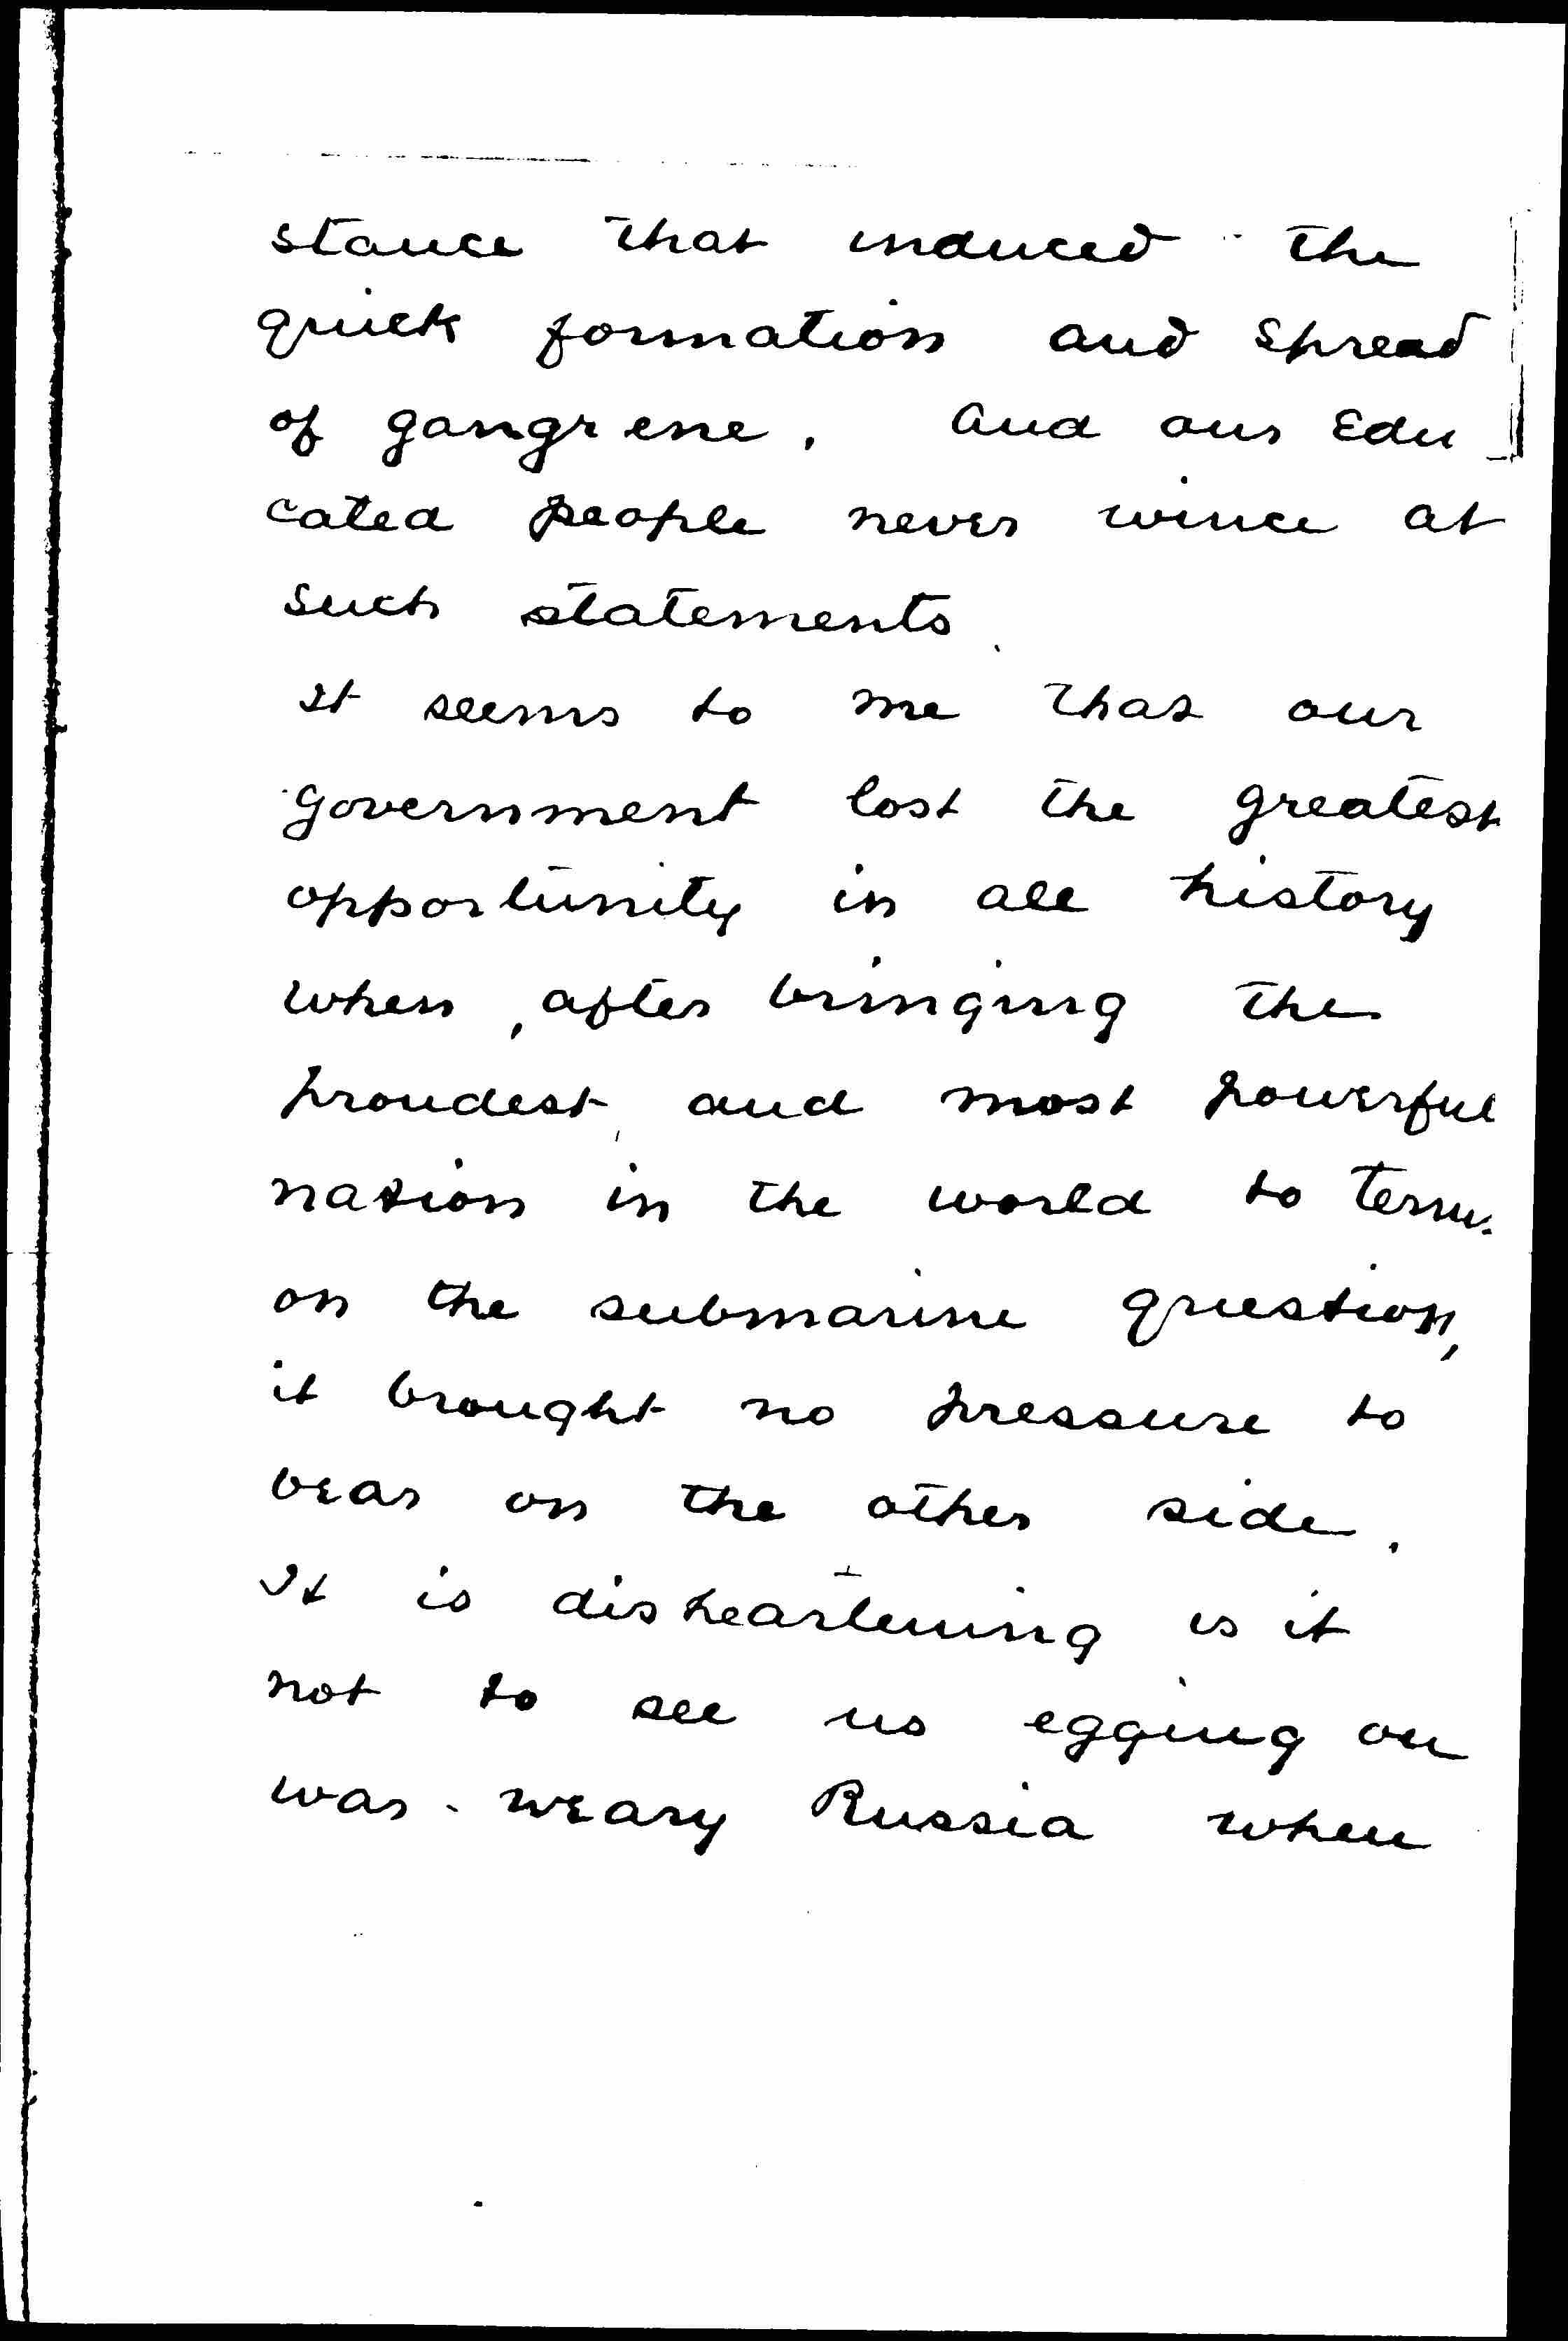 stance that induced the
quick formation and spread
of gangrene. And our Edu
cated people never wince at
such statements.
It seems to me that our
government lost the greatest
opportunity in all history
when, after bringing the
proudest, and most powerful
nation in the world to terms
on the submarine question,
it brought no pressure to
bear on the other side.
It is disheartening is it
not to see us egging on
war-weary Russia when